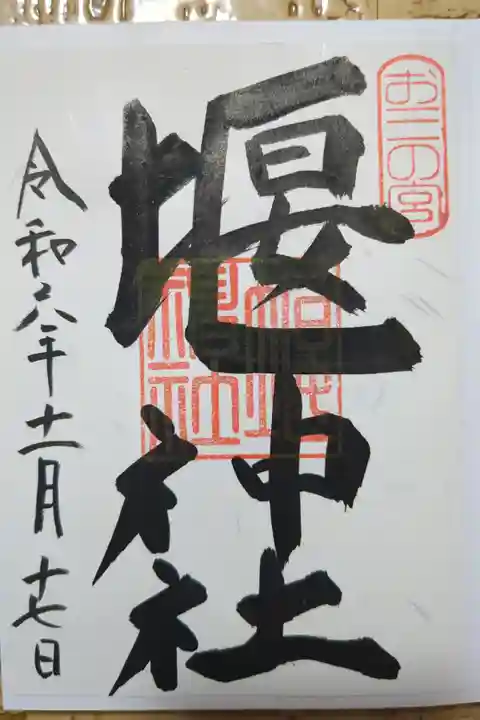 お三の宮
堰神社
堰神社
令和六年十一月十七日